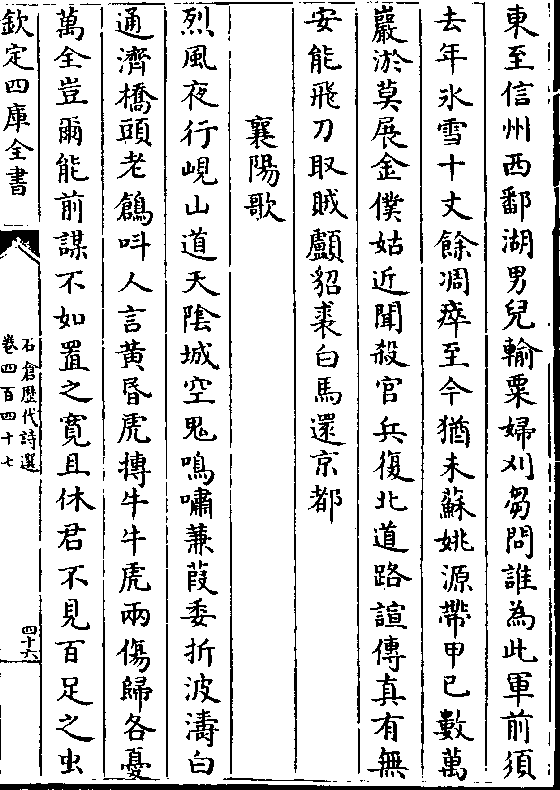 東至信州西鄱湖男兒輸粟婦刈芻問誰為此軍前須
去年氷雪十丈餘凋瘁至今猶未蘇姚源帶甲已數萬
巖淤莫展金僕姑近聞殺官兵復北道路諠傳真有無
安能飛刀取賊顱貂裘白馬還京都
襄陽歌
烈風夜行峴山道天陰城空鬼鳴嘯蒹葭委折波濤白
通濟橋頭老鶬呌人言黃昏虎摶牛牛虎兩傷歸各憂
萬全豈爾能前謀不如置之寛且休君不見百足之虫
欽定四庫全書
石倉歴代詩選
卷四百四十七
四十六